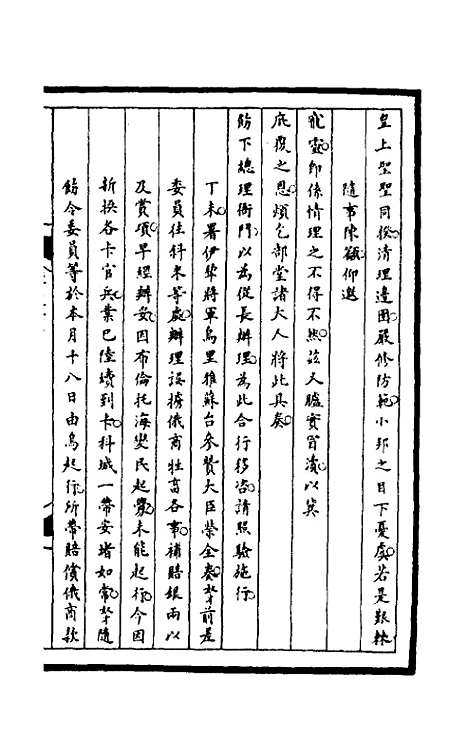 皇上聖聖同揆清理邊圉嚴修防範小邦之目下憂虞若是艱棘
隨事陳籲仰邀
飛靈即係情理之不得不然茲又臚實冒瀆以冀
庇覆之恩煩乞部堂諸大人將此具奏
飭下總理衙門以為從長辦理為此合行移咨請照驗施行
丁未署伊犂將軍烏里雅蘇台參贊大臣榮全奏奴才前是
委員往科米等處辦理誤搶俄商牲畜各事補賠銀兩以
及賞項早經辦妥因布倫托海變民起釁未能起行今因
新換各卡官兵業已陸續到卡科城一帶安堵如常奴才隨
飭令委員等於本月十八日由烏起行所帶賠償俄商款